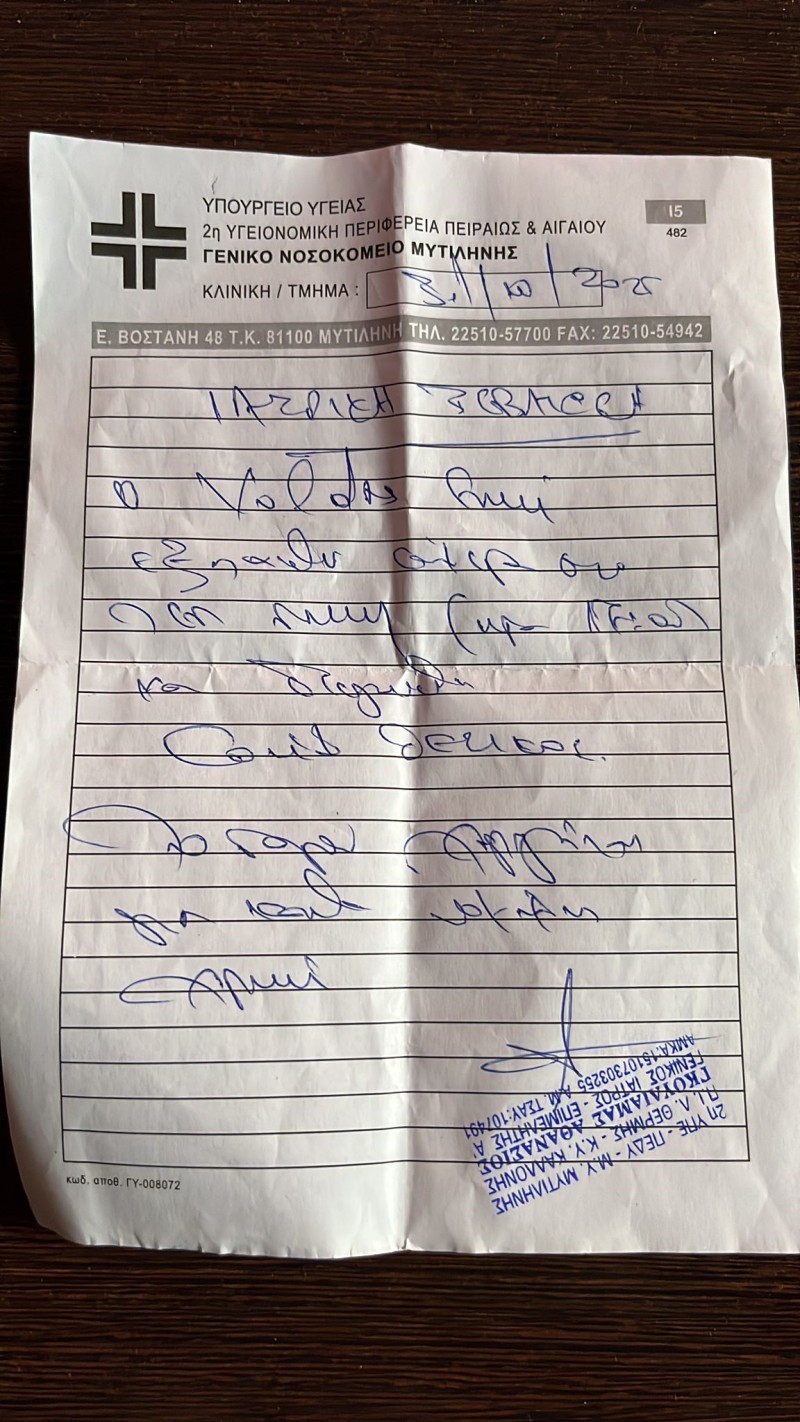 ΥΠΟΥΡΓΕΙΟ ΥΓΕΙΑΣ
2η ΥΓΕΙΟΝΟΜΙΚΗ ΠΕΡΙΦΕΡΕΙΑ ΠΕΙΡΑΙΩΣ & ΑΙΓΑΙΟΥ
ΓΕΝΙΚΟ ΝΟΣΟΚΟΜΕΙΟ ΜΥΤΙΛΗΝΗΣ
15
482
ΚΛΙΝΙΚΗ / ΤΜΗΜΑ : 31/10/2025
Ε. ΒΟΣΤΑΝΗ 48 Τ.Κ. 81100 ΜΥΤΙΛΗΝΗ ΤΗΛ. 22510-57700 FAX: 22510-54942
ΙΑΤΡΙΚΗ ΒΕΒΑΙΩΣΗ
ο
εξετάσθη σήμερα στο
και διεγνώσθη
Covid θετικός.
Το παρόν χορηγείται
για κάθε νόμιμη
χρήση
2η ΥΠΕ - ΠΕΔΥ - Μ.Υ. ΜΥΤΙΛΗΝΗΣ
Π.Ι. Λ. ΘΕΡΜΗΣ - Κ.Υ. ΚΑΛΛΟΝΗΣ
ΓΚΟΥΛΙΑΜΑΣ ΑΘΑΝΑΣΙΟΣ
ΓΕΝΙΚΟΣ ΙΑΤΡΟΣ - ΕΠΙΜΕΛΗΤΗΣ Α'
ΑΜΚΑ:15107303255 Α.Μ. ΤΣΑΥ:107491
κωδ. αποθ. ΓΥ-008072